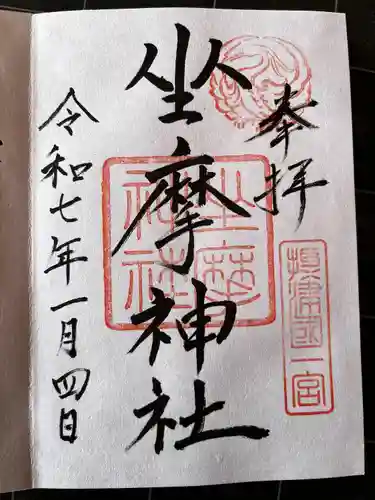 奉拝
摂津國一宮
坐摩神社
坐摩神社
令和七年一月四日